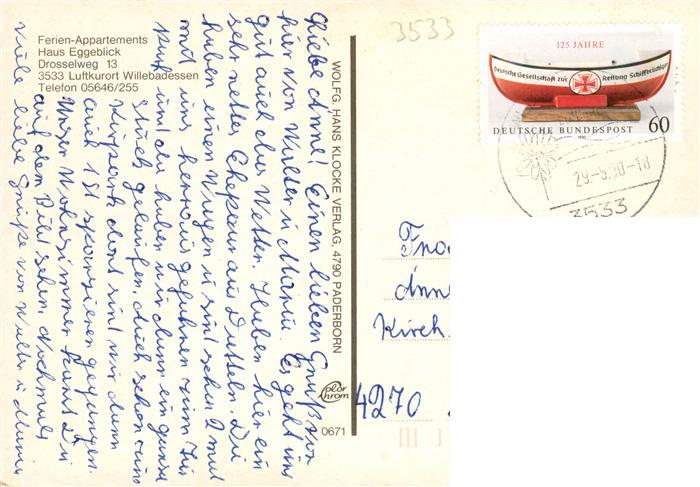 Ferien-Appartements
Haus Eggeblick
Drosselweg 13
3533 Luftkurort Willebadessen
Telefon 05646/255
Liebe Anne! Einen lieben Gruß von
hier von Walter u Maria. Es geht uns
gut auch das Wetter. Haben hier ein
sehr nettes Ehepaar aus Datteln. Die
haben einen Wagen u sind schon 2 mal
mit uns herraus gefahren zum
und da haben wir dann ein ganzes
Stück gelaufen, auch schon zum
Kurpark dort sind wir dann
auch 1 St spazieren gegangen.
Unser Wohnzimmer kannst Du
auf dem Bild sehen. Nochmals
viele liebe Grüße von Walter u Maria
WOLFG. HANS KLOCKE VERLAG, 4790 PADERBORN
color
chrom
0671
3533
125 JAHRE
Deutsche Gesellschaft zur Rettung Schiffbrüchiger
DEUTSCHE BUNDESPOST 60
1990
29.-5.90-18
3533
Frau
Anne
Kirch
4270